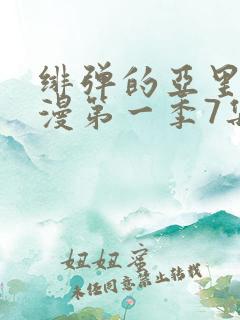 绯弹的亚里
漫第一季7集
妞妞蜜
未经同意禁止转载